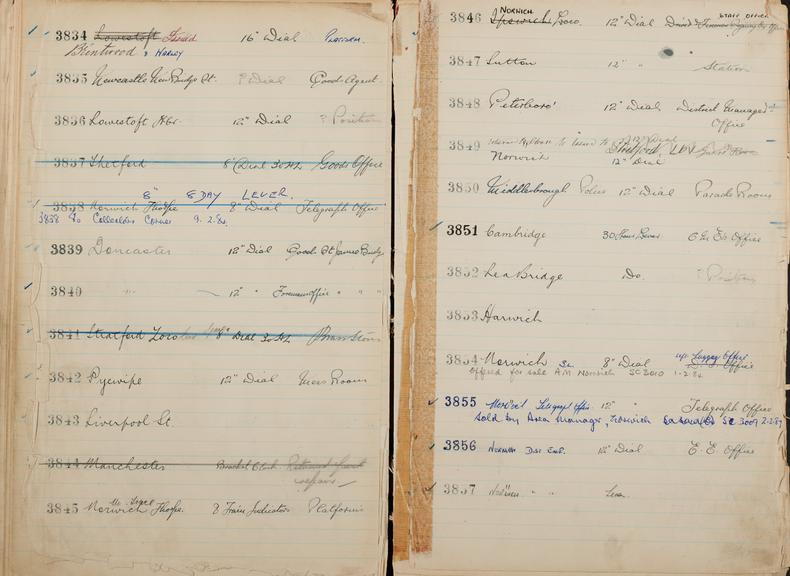 3834 Lowestoft 16" Dial Platform.
Brentwood & Harley
3835 Newcastle New Bridge St. ? Dial Goods Agent
3836 Lowestoft Hbr. 12" Dial ? Position
3837 Thetford 8" Dial 30 Hr Goods Office
8" 8 DAY LEVER.
3838 Norwich Thorpe 8" Dial Telegraph Office
3838 To Collectors Corner 9.2.84.
3839 Doncaster 12" Dial Goods St James Bridge
3840 " 12" " Foremans Office " "
3841 Stratford Loco 8" Dial 30 Hr
3842 Pyewipe 12" Dial Mess Room
3843 Liverpool St.
3844 Manchester Bracket Clock
repairs
3845 Norwich Thorpe. 8 Train Indicators Platforms
NORWICH STAFF OFFICE
3846 Ipswich Loco. 12" Dial
3847 Sutton 12" " Station
3848 Peterboro' 12" Dial District Managers
Office
3849 12" Dial
Norwich 12" Dial
3850 Middlesbrough Police 12" Dial Parade Room
3851 Cambridge 30 Hour Lever C.H.E's Office
3852 Lea Bridge Do. ? Position
3853 Harwich
Luggage Office
3854 Norwich 8" Dial Office
Offered for sale A.M. Norwich SC3010 1.2.84
3855 Telegraph Office 12" " Telegraph Office
Sold by Area Manager, Norwich SC 3009 2.2.84
3856 Norwich Dist. Eng. 12" Dial E.E. Office
3857 " "